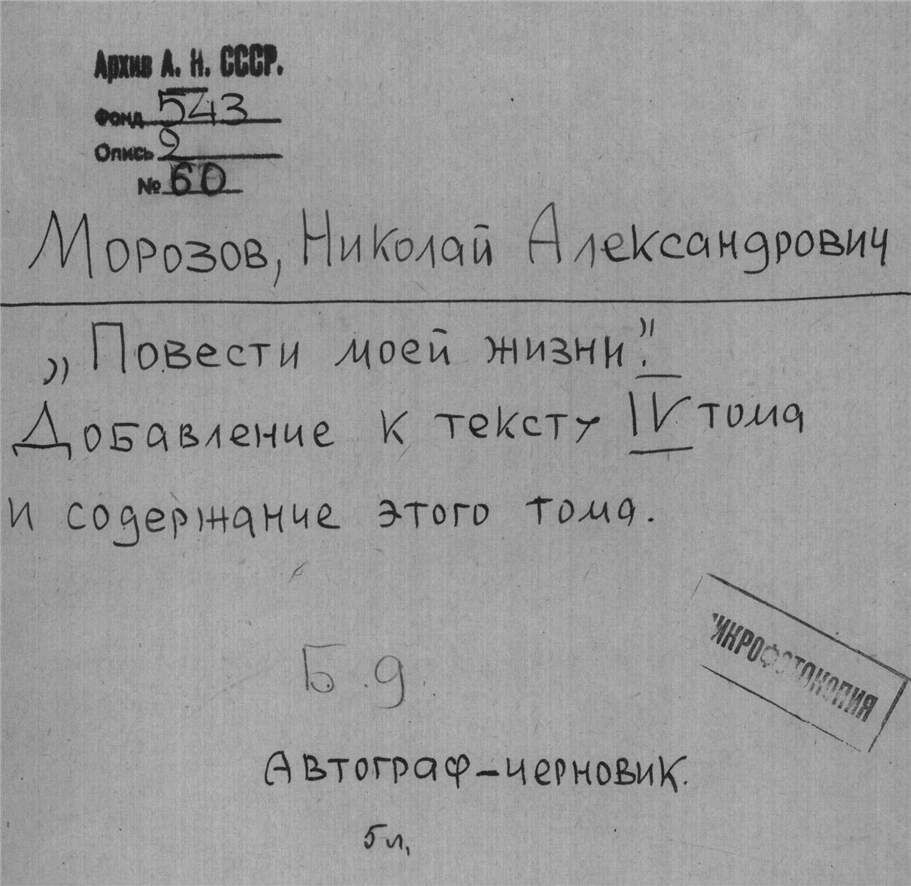 Архив А. Н. СССР.
Фонд 543
Опись 2
№ 60
Морозов, Николай Александрович
„Повести моей жизни".
Добавление к тексту IV тома
и содержание этого тома.
Б.д.
МИКРОФОТОКОПИЯ
Автограф-черновик.
5 л,